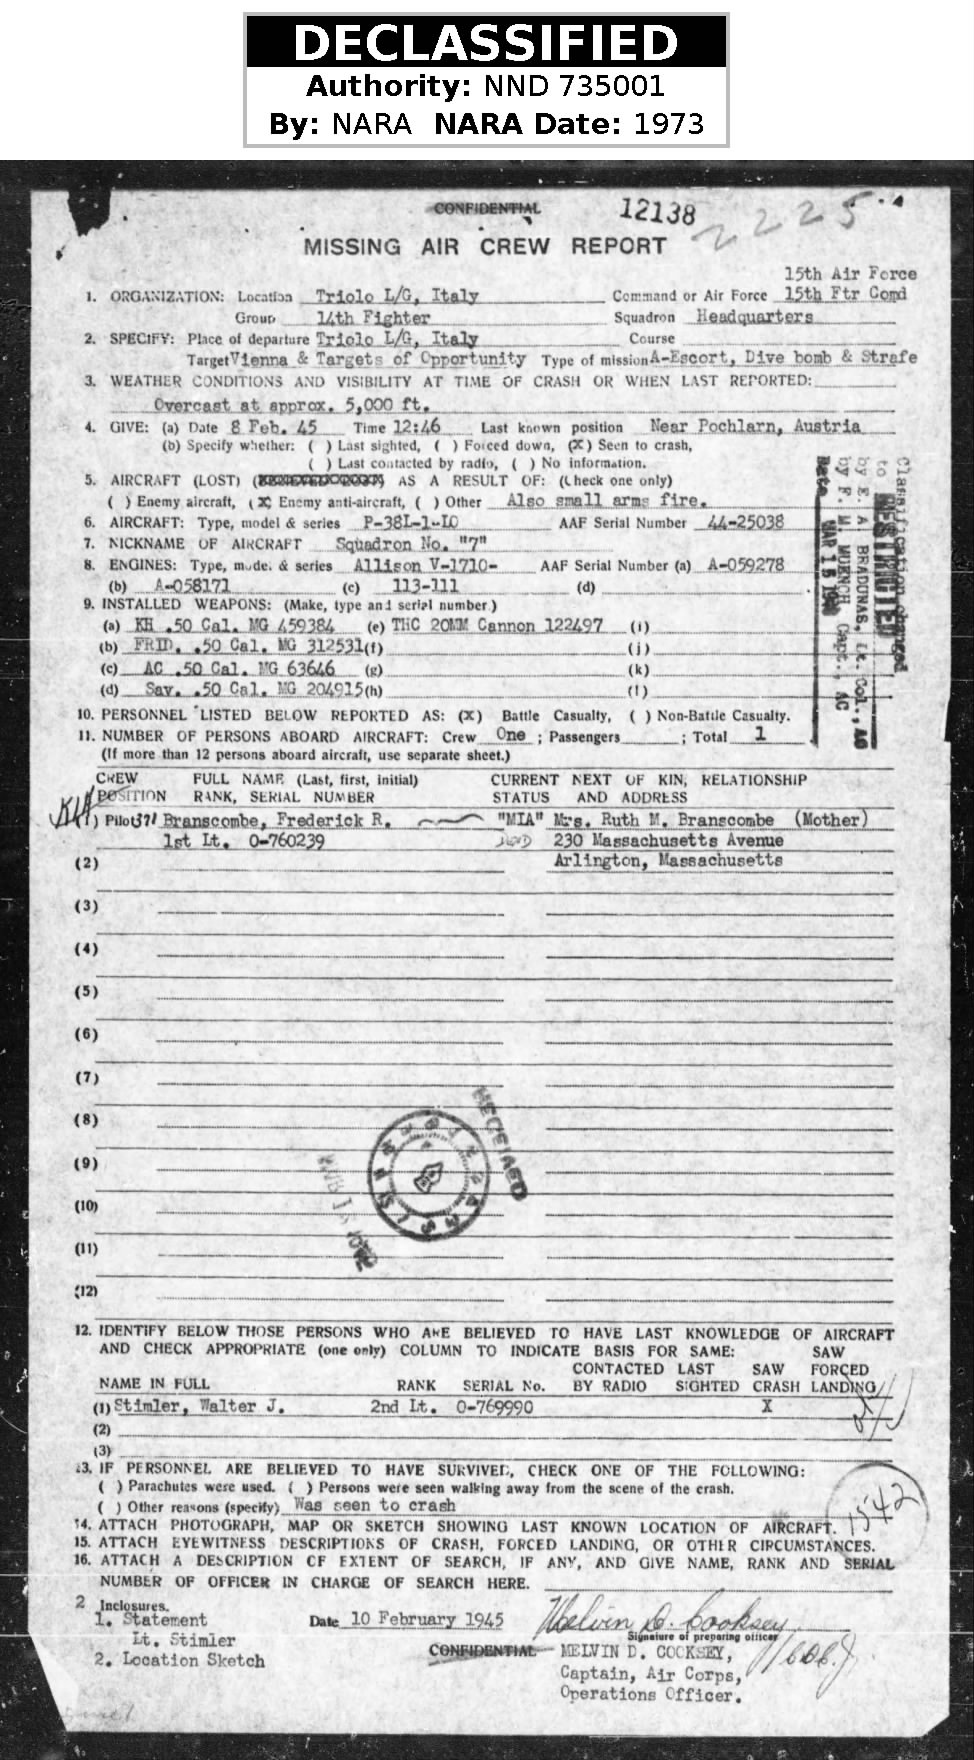 DECLASSIFIED
Authority: NND 735001
By: NARA NARA Date: 1973
CONFIDENTIAL 12138 2225
MISSING AIR CREW REPORT
15th Air Force
1. ORGANIZATION: Location Triolo L/G, Italy Command or Air Force 15th Ftr Comd
Group 14th Fighter Squadron Headquarters
2. SPECIFY: Place of departure Triolo L/G, Italy Course
Target Vienna & Targets of Opportunity Type of mission A-Escort, Dive bomb & Strafe
3. WEATHER CONDITIONS AND VISIBILITY AT TIME OF CRASH OR WHEN LAST REPORTED:
Overcast at approx. 5,000 ft.
4. GIVE: (a) Date 8 Feb. 45 Time 12:46 Last known position Near Pochlarn, Austria
(b) Specify whether: ( ) Last sighted, ( ) Forced down, (X) Seen to crash,
( ) Last contacted by radio, ( ) No information.
5. AIRCRAFT (LOST) AS A RESULT OF: (Check one only)
( ) Enemy aircraft, (X Enemy anti-aircraft, ( ) Other Also small arms fire.
6. AIRCRAFT: Type, model & series P-38L-1-LO AAF Serial Number 44-25038
7. NICKNAME OF AIRCRAFT Squadron No. "7"
8. ENGINES: Type, mode. & series Allison V-1710- AAF Serial Number (a) A-059278
(b) A-058171 (c) 113-111 (d)
9. INSTALLED WEAPONS: (Make, type and serial number)
(a) KH .50 Cal. MG 459384 (e) THC 20MM Cannon 122497 (i)
(b) FRID. .50 Cal. MG 312531 (f) (j)
(c) AC .50 Cal. MG 63646 (g) (k)
(d) Sav. .50 Cal. MG 204915 (h) (l)
Classification changed
to RESTRICTED
by E. A. BRADUNAS, Lt. Col., AC
by F. M. MUENCH Capt., AC
Date MAR 15 1946
10. PERSONNEL LISTED BELOW REPORTED AS: (X) Battle Casualty, ( ) Non-Battle Casualty.
11. NUMBER OF PERSONS ABOARD AIRCRAFT: Crew One ; Passengers ; Total 1
(If more than 12 persons aboard aircraft, use separate sheet.)
CREW FULL NAME (Last, first, initial) CURRENT NEXT OF KIN, RELATIONSHIP
POSITION RANK, SERIAL NUMBER STATUS AND ADDRESS
KIA ) Pilot Branscombe, Frederick R. "MIA" Mrs. Ruth M. Branscombe (Mother)
1st Lt. 0-760239 230 Massachusetts Avenue
(2) Arlington, Massachusetts
(3)
(4)
(5)
(6)
(7)
(8)
(9)
(10)
(11)
(12)
RECEIVED
12. IDENTIFY BELOW THOSE PERSONS WHO ARE BELIEVED TO HAVE LAST KNOWLEDGE OF AIRCRAFT
AND CHECK APPROPRIATE (one only) COLUMN TO INDICATE BASIS FOR SAME: SAW
CONTACTED LAST SAW FORCED
NAME IN FULL RANK SERIAL No. BY RADIO SIGHTED CRASH LANDING
(1) Stimler, Walter J. 2nd Lt. 0-769990 X
(2)
(3)
13. IF PERSONNEL ARE BELIEVED TO HAVE SURVIVED, CHECK ONE OF THE FOLLOWING:
( ) Parachutes were used. ( ) Persons were seen walking away from the scene of the crash.
( ) Other reasons (specify) Was seen to crash
1542
14. ATTACH PHOTOGRAPH, MAP OR SKETCH SHOWING LAST KNOWN LOCATION OF AIRCRAFT.
15. ATTACH EYEWITNESS DESCRIPTIONS OF CRASH, FORCED LANDING, OR OTHER CIRCUMSTANCES.
16. ATTACH A DESCRIPTION OF EXTENT OF SEARCH, IF ANY, AND GIVE NAME, RANK AND SERIAL
NUMBER OF OFFICER IN CHARGE OF SEARCH HERE.
2 Inclosures.
1. Statement Date 10 February 1945 Melvin D. Cooksey
Lt. Stimler Signature of preparing officer
CONFIDENTIAL MELVIN D. COOKSEY,
2. Location Sketch Captain, Air Corps,
Operations Officer.